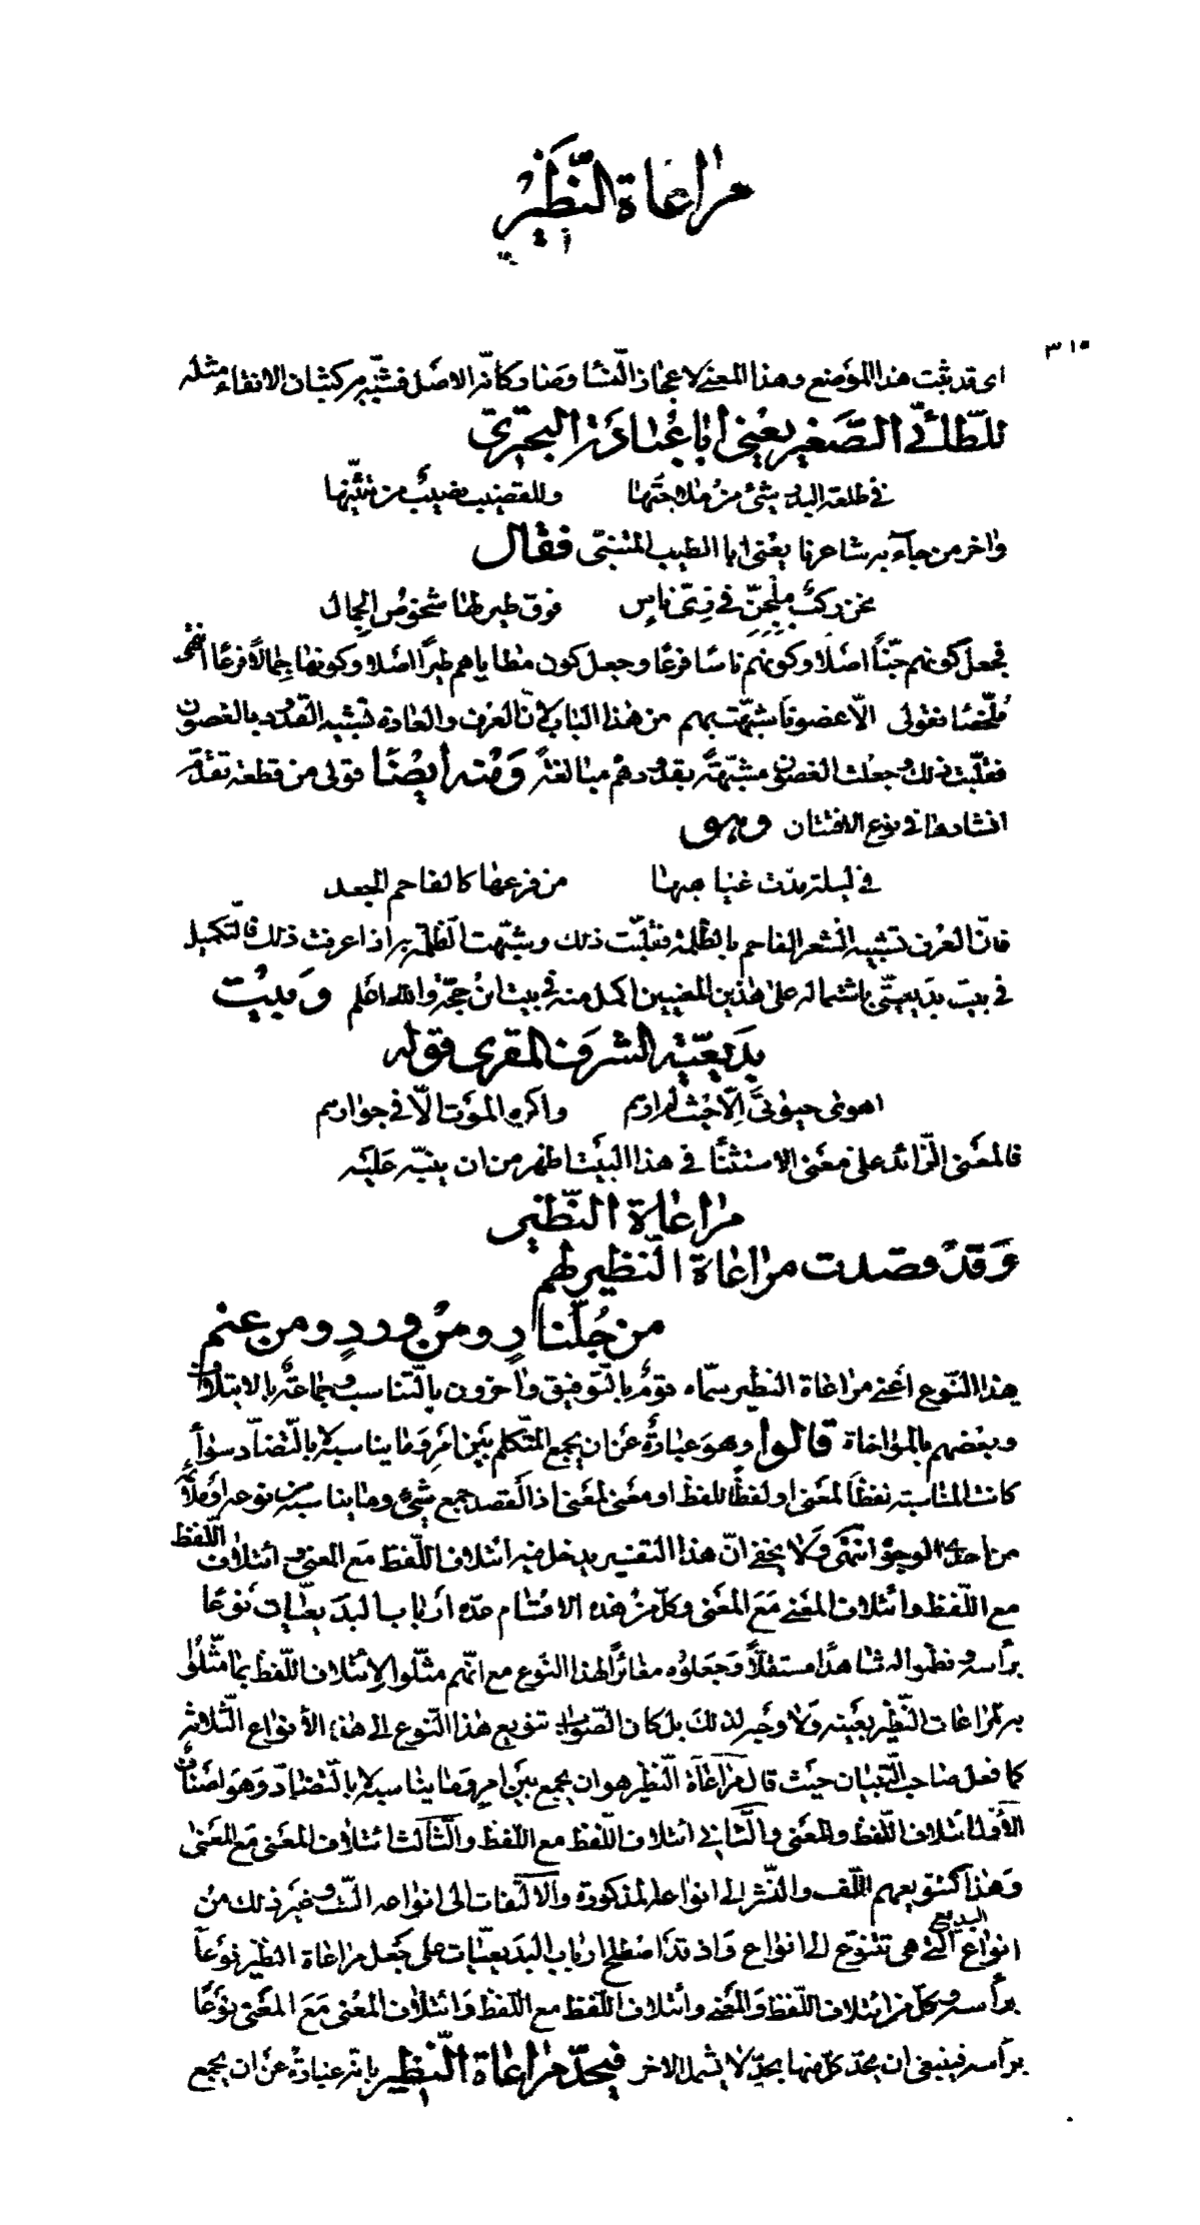 مراعاة النظير
٣١٥
اى قد ثبت هذا الموضع وهذا المعنى لاعجاز النسا وصار كانه الاصل فشبه به كثبان الانقاء ومثله
للطائى الصغير يعنى ابا عبادة البحترى
فى طلعة البدر شئ من ملاحتها وللقضيب نصيب من تثنيها
واخر من جاء به شاعرنا يعنى ابا الطيب المتنبى فقال
نحن ركب ملجن فى زى ناس فوق طير لها شخوص الجمال
فجعل كونهم جنا اصلا وكونهم ناسا فرعا وجعل كون مطاياهم طيرا اصلا وكونها جمالا فرعا انتهى
ملخصا فقولى الا عضونا شبهت بهم من هذا الباب فان العرف والعادة تشبيه القدود بالغصون
فقلبت ذلك وجعلت الغصون مشبهة بقدودهم مبالغة ومنه أيضا قولى من قطعة تقدم
انشادها فى نوع الافتنان وهو
فى ليلة مدت غياهبها من فرعها كالفاحم الجعد
فان العرف تشبيه الشعر الفاحم بالظلمة فقلبت ذلك وشبهت الظلمة به اذا عرفت ذلك فالتكميل
فى بيت بديعيتى باشتماله على هذين المعنيين اكمل منه فى بيت ابن حجة والله اعلم وبيت
بديعية الشرف المقرى قوله
اهوى حيوتى الا حيث لم ارهم واكره الموت الا فى جوارهم
فالمعنى الزائد على معنى الاستثنا فى هذا البيت اظهر من ان ينبه عليه
مراعاة النظير
وقد قصدت مراعاة النظير لهم
من جلنار ومن ورد ومن عنم
هذا النوع اعنى مراعاة النظير سماه قوم بالتوفيق واخرون بالتناسب وجماعة بالايتلاف
وبعضهم بالمواخاة قالوا وهو عبارة عن ان يجمع المتكلم بين امر وما يناسبه لا بالتضاد سواء
كانت المناسبة لفظا لمعنى او لفظا للفظ او معنى لمعنى اذ القصد جمع شئ وما يناسبه من نوعه او ملائمه
من احد الوجوه انتهى ولا يخفى ان هذا التفسير يدخل فيه ائتلاف اللفظ مع المعنى وائتلاف اللفظ
مع اللفظ وائتلاف المعنى مع المعنى وكل من هذه الاقسام عده ارباب البديعيات نوعا
برأسه ونظموا له شاهدا مستقلا وجعلوه مغائرا لهذا النوع مع انهم مثلوا لائتلاف اللفظ بما مثلوا
به لمراعات النظير بعينه ولا وجه لذلك بل كان الصواب تنويع هذا النوع الى هذه الأنواع الثلاثة
كما فعل صاحب التبيان حيث قال مراعاة النظير هو ان يجمع بين امر وما يناسبه لا بالتضاد وهو اصناف
الأول ائتلاف اللفظ والمعنى والثانى ائتلاف اللفظ مع اللفظ والثالث ائتلاف المعنى مع المعنى
وهذا كتنويعهم اللف والنشر الى انواعه المذكورة والالتفات الى انواعه الست وغير ذلك من
انواع البديع التى هى تتنوع الى انواع واذ قد اصطلح ارباب البديعيات على جعل مراعاة النظير نوعا
برأسه وكل من ائتلاف اللفظ والمعنى وائتلاف اللفظ مع اللفظ وائتلاف المعنى مع المعنى نوعا
برأسه فينبغى ان يحد كل منها بحد لا يشمل الاخر فيحد مراعاة النظير بانه عبارة عن ان يجمع